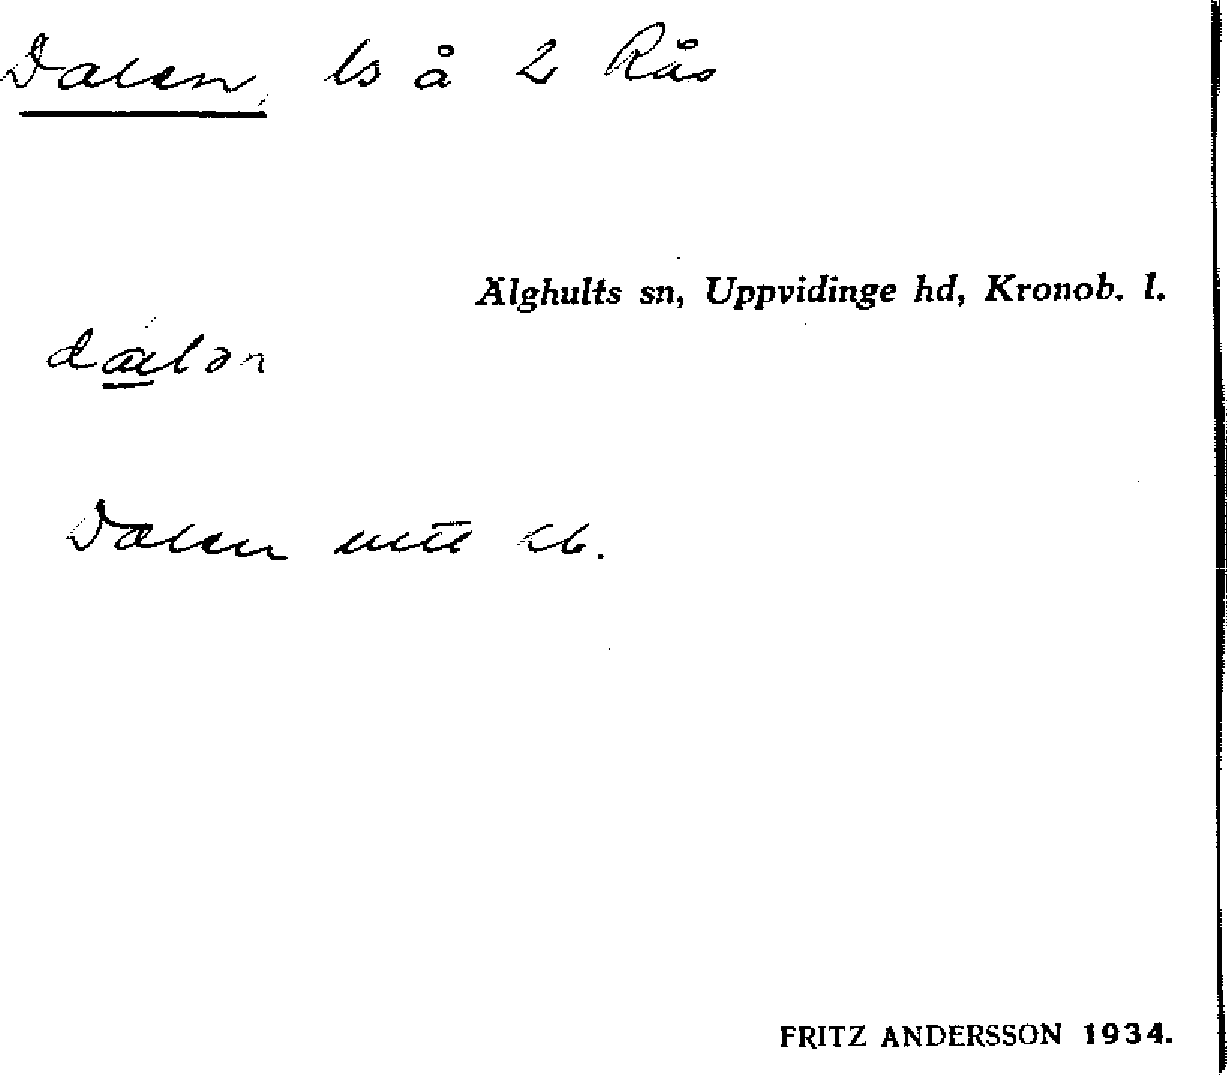 Dalen, ls å 2 Rås
Älghults sn, Uppvidinge hd, Kronob. l.
Dalen
FRITZ ANDERSSON 1934.